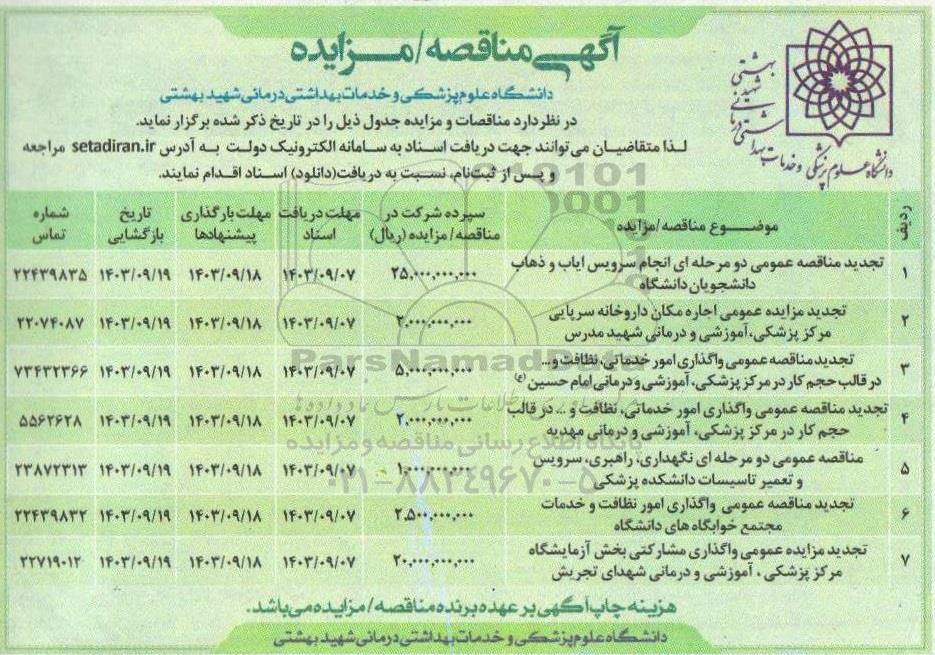 آگهی مناقصه/مزایده
دانشگاه علوم پزشکی و خدمات بهداشتی درمانی شهید بهشتی
در نظر دارد مناقصات و مزایده جدول ذیل را در تاریخ ذکر شده برگزار نماید.
لذا متقاضیان می‌توانند جهت دریافت اسناد به سامانه الکترونیک دولت به آدرس setadiran.ir مراجعه
و پس از ثبت‌نام، نسبت به دریافت(دانلود) اسناد اقدام نمایند.
دانشگاه علوم پزشکی و خدمات بهداشتی درمانی شهید بهشتی
ردیف | موضوع مناقصه/مزایده | سپرده شرکت در مناقصه/مزایده (ریال) | مهلت دریافت اسناد | مهلت بارگذاری پیشنهادها | تاریخ بازگشایی | شماره تماس
۱ | تجدید مناقصه عمومی دو مرحله ای انجام سرویس ایاب و ذهاب دانشجویان دانشگاه | ۲۵,۰۰۰,۰۰۰,۰۰۰ | ۱۴۰۳/۰۹/۰۷ | ۱۴۰۳/۰۹/۱۸ | ۱۴۰۳/۰۹/۱۹ | ۲۲۴۳۹۸۳۵
۲ | تجدید مزایده عمومی اجاره مکان داروخانه سرپایی مرکز پزشکی، آموزشی و درمانی شهید مدرس | ۲,۰۰۰,۰۰۰,۰۰۰ | ۱۴۰۳/۰۹/۰۷ | ۱۴۰۳/۰۹/۱۸ | ۱۴۰۳/۰۹/۱۹ | ۲۲۰۷۴۰۸۷
۳ | تجدید مناقصه عمومی واگذاری امور خدماتی، نظافت و... در قالب حجم کار در مرکز پزشکی، آموزشی و درمانی امام حسین (ع) | ۵,۰۰۰,۰۰۰,۰۰۰ | ۱۴۰۳/۰۹/۰۷ | ۱۴۰۳/۰۹/۱۸ | ۱۴۰۳/۰۹/۱۹ | ۷۳۴۳۲۳۶۶
۴ | تجدید مناقصه عمومی واگذاری امور خدماتی، نظافت و ... در قالب حجم کار در مرکز پزشکی، آموزشی و درمانی مهدیه | ۲,۰۰۰,۰۰۰,۰۰۰ | ۱۴۰۳/۰۹/۰۷ | ۱۴۰۳/۰۹/۱۸ | ۱۴۰۳/۰۹/۱۹ | ۵۵۶۲۶۲۸
۵ | مناقصه عمومی دو مرحله ای نگهداری، راهبری، سرویس و تعمیر تاسیسات دانشکده پزشکی | ۱,۰۰۰,۰۰۰,۰۰۰ | ۱۴۰۳/۰۹/۰۷ | ۱۴۰۳/۰۹/۱۸ | ۱۴۰۳/۰۹/۱۹ | ۲۳۸۷۲۳۱۳
۶ | تجدید مناقصه عمومی واگذاری امور نظافت و خدمات مجتمع خوابگاه های دانشگاه | ۲,۵۰۰,۰۰۰,۰۰۰ | ۱۴۰۳/۰۹/۰۷ | ۱۴۰۳/۰۹/۱۸ | ۱۴۰۳/۰۹/۱۹ | ۲۲۴۳۹۸۳۲
۷ | تجدید مزایده عمومی واگذاری مشارکتی بخش آزمایشگاه مرکز پزشکی ، آموزشی و درمانی شهدای تجریش | ۲۰,۰۰۰,۰۰۰,۰۰۰ | ۱۴۰۳/۰۹/۰۷ | ۱۴۰۳/۰۹/۱۸ | ۱۴۰۳/۰۹/۱۹ | ۲۲۷۱۹۰۱۲
ParsNamadData
پایگاه اطلاع رسانی مناقصه و مزایده
۰۲۱-۸۸۳۴۹۶۷۰-۵
هزینه چاپ آگهی بر عهده برنده مناقصه/مزایده می‌باشد.
دانشگاه علوم پزشکی و خدمات بهداشتی درمانی شهید بهشتی